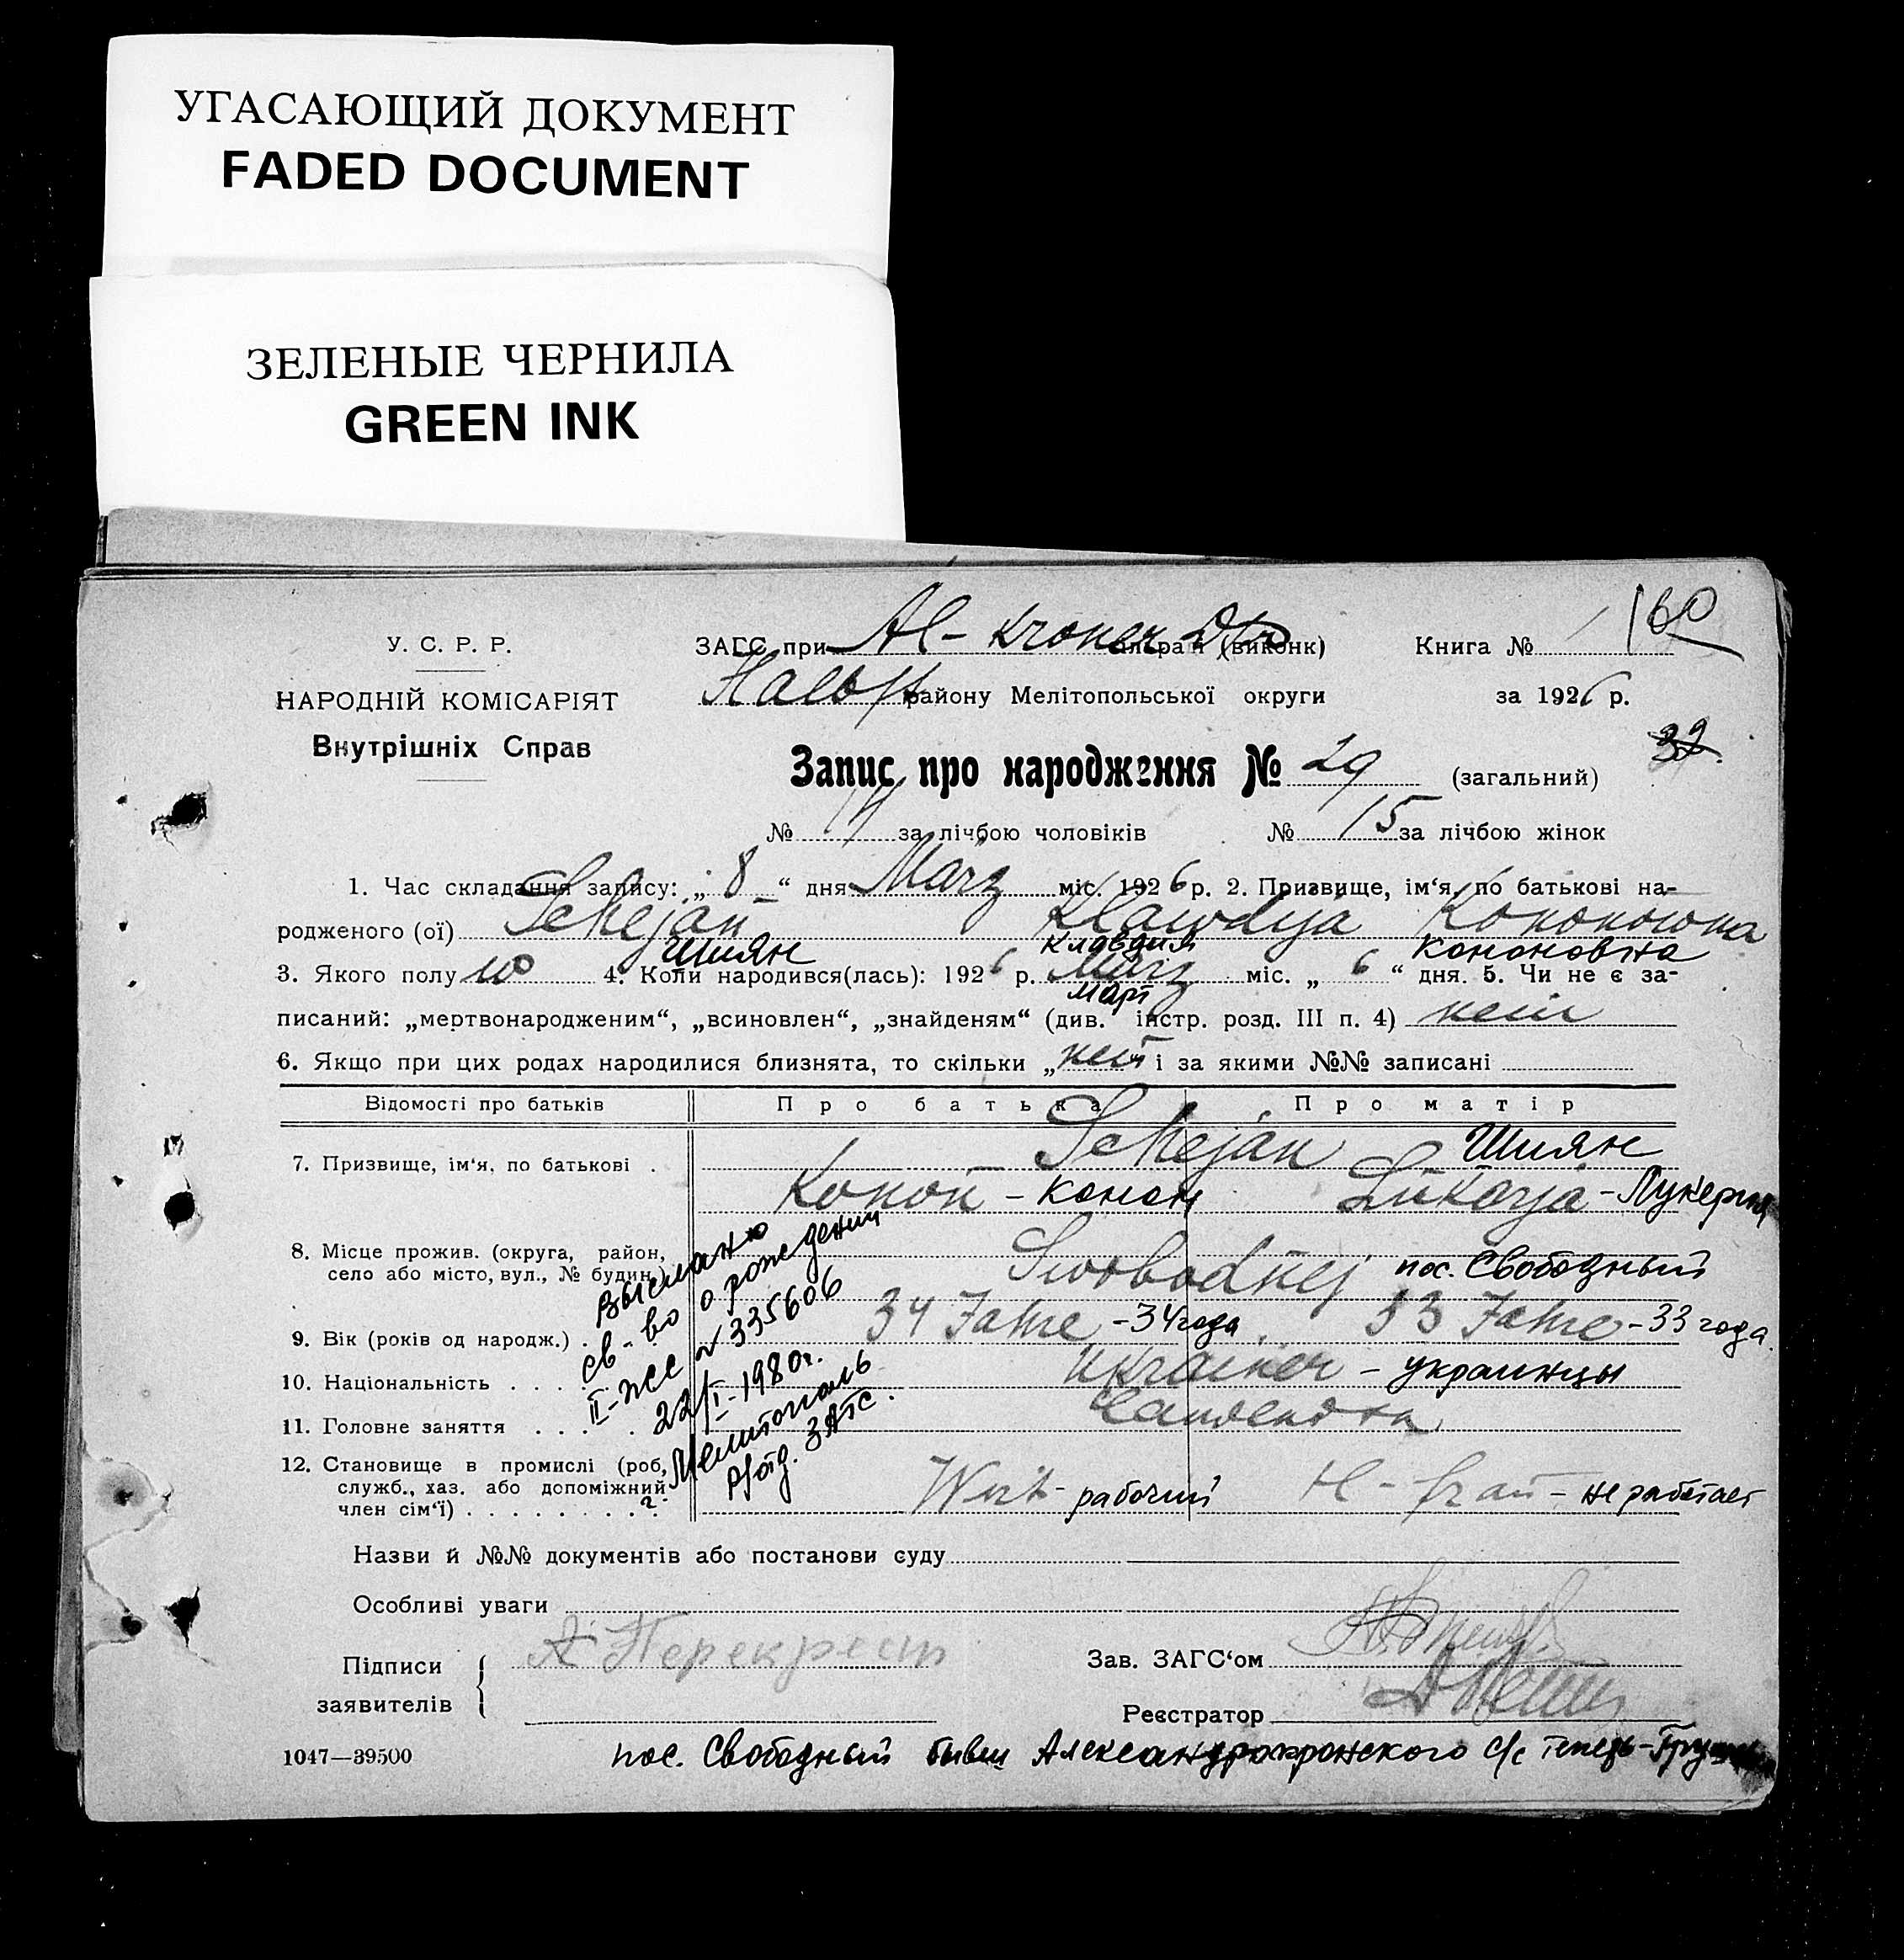 УГАСАЮЩИЙ ДОКУМЕНТ
FADED DOCUMENT
ЗЕЛЕНЫЕ ЧЕРНИЛА
GREEN INK
160
У. С. Р. Р.
ЗАГС при Al- Kroner (виконк) Книга №
НАРОДНІЙ КОМІСАРІЯТ
району Мелітопольської округи за 1926 р.
Внутрішніх Справ
32
Запис про народження № 29 (загальний)
№ 14 за лічбою чоловіків № 15 за лічбою жінок
1. Час складання запису: „ 8 “ дня März міс. 1926 р. 2. Призвище, ім‘я, по батькові на-
родженого (ої) Schejan Klawdija Kononowna
Шиян Клавдия Кононовна
3. Якого полу 4. Коли народився(лась): 1926 р. März міс. „ 6 “ дня. 5. Чи не є за-
март
писаний: „мертвонародженим“, „всиновлен“, „знайденям“ (див. інстр. розд. III п. 4) нет
6. Якщо при цих родах народилися близнята, то скільки „ нет і за якими №№ записані
Відомості про батьків Про батька Про матір
7. Призвище, ім‘я, по батькові . Schejan Шиян
Konon - Конон Lukarja - Лукерия
8. Місце прожив. (округа, район,
село або місто, вул., № будин.) Swobodnej пос. Свободный
9. Вік (років од народж.) . 34 Jahre - 34 года 33 Jahre - 33 года.
10. Національність . . . . Ukrainer - украинцы
11. Головне заняття . . . . .
12. Становище в промислі (роб,
служб., хаз. або допоміжний
член сім‘ї) . . . . . . . . . ? - рабочий H-frau - не работает
выслано
св-во о рождении
II-ЖС № 335606
22/I-1980г.
Мелитополь
ЗАГС.
Назви й №№ документів або постанови суду
Особливі уваги
Підписи
заявителів
Перекрест
Зав. ЗАГС‘ом
Реєстратор
1047—39500
пос. Свободный бывш Александрокронского с/с теперь-